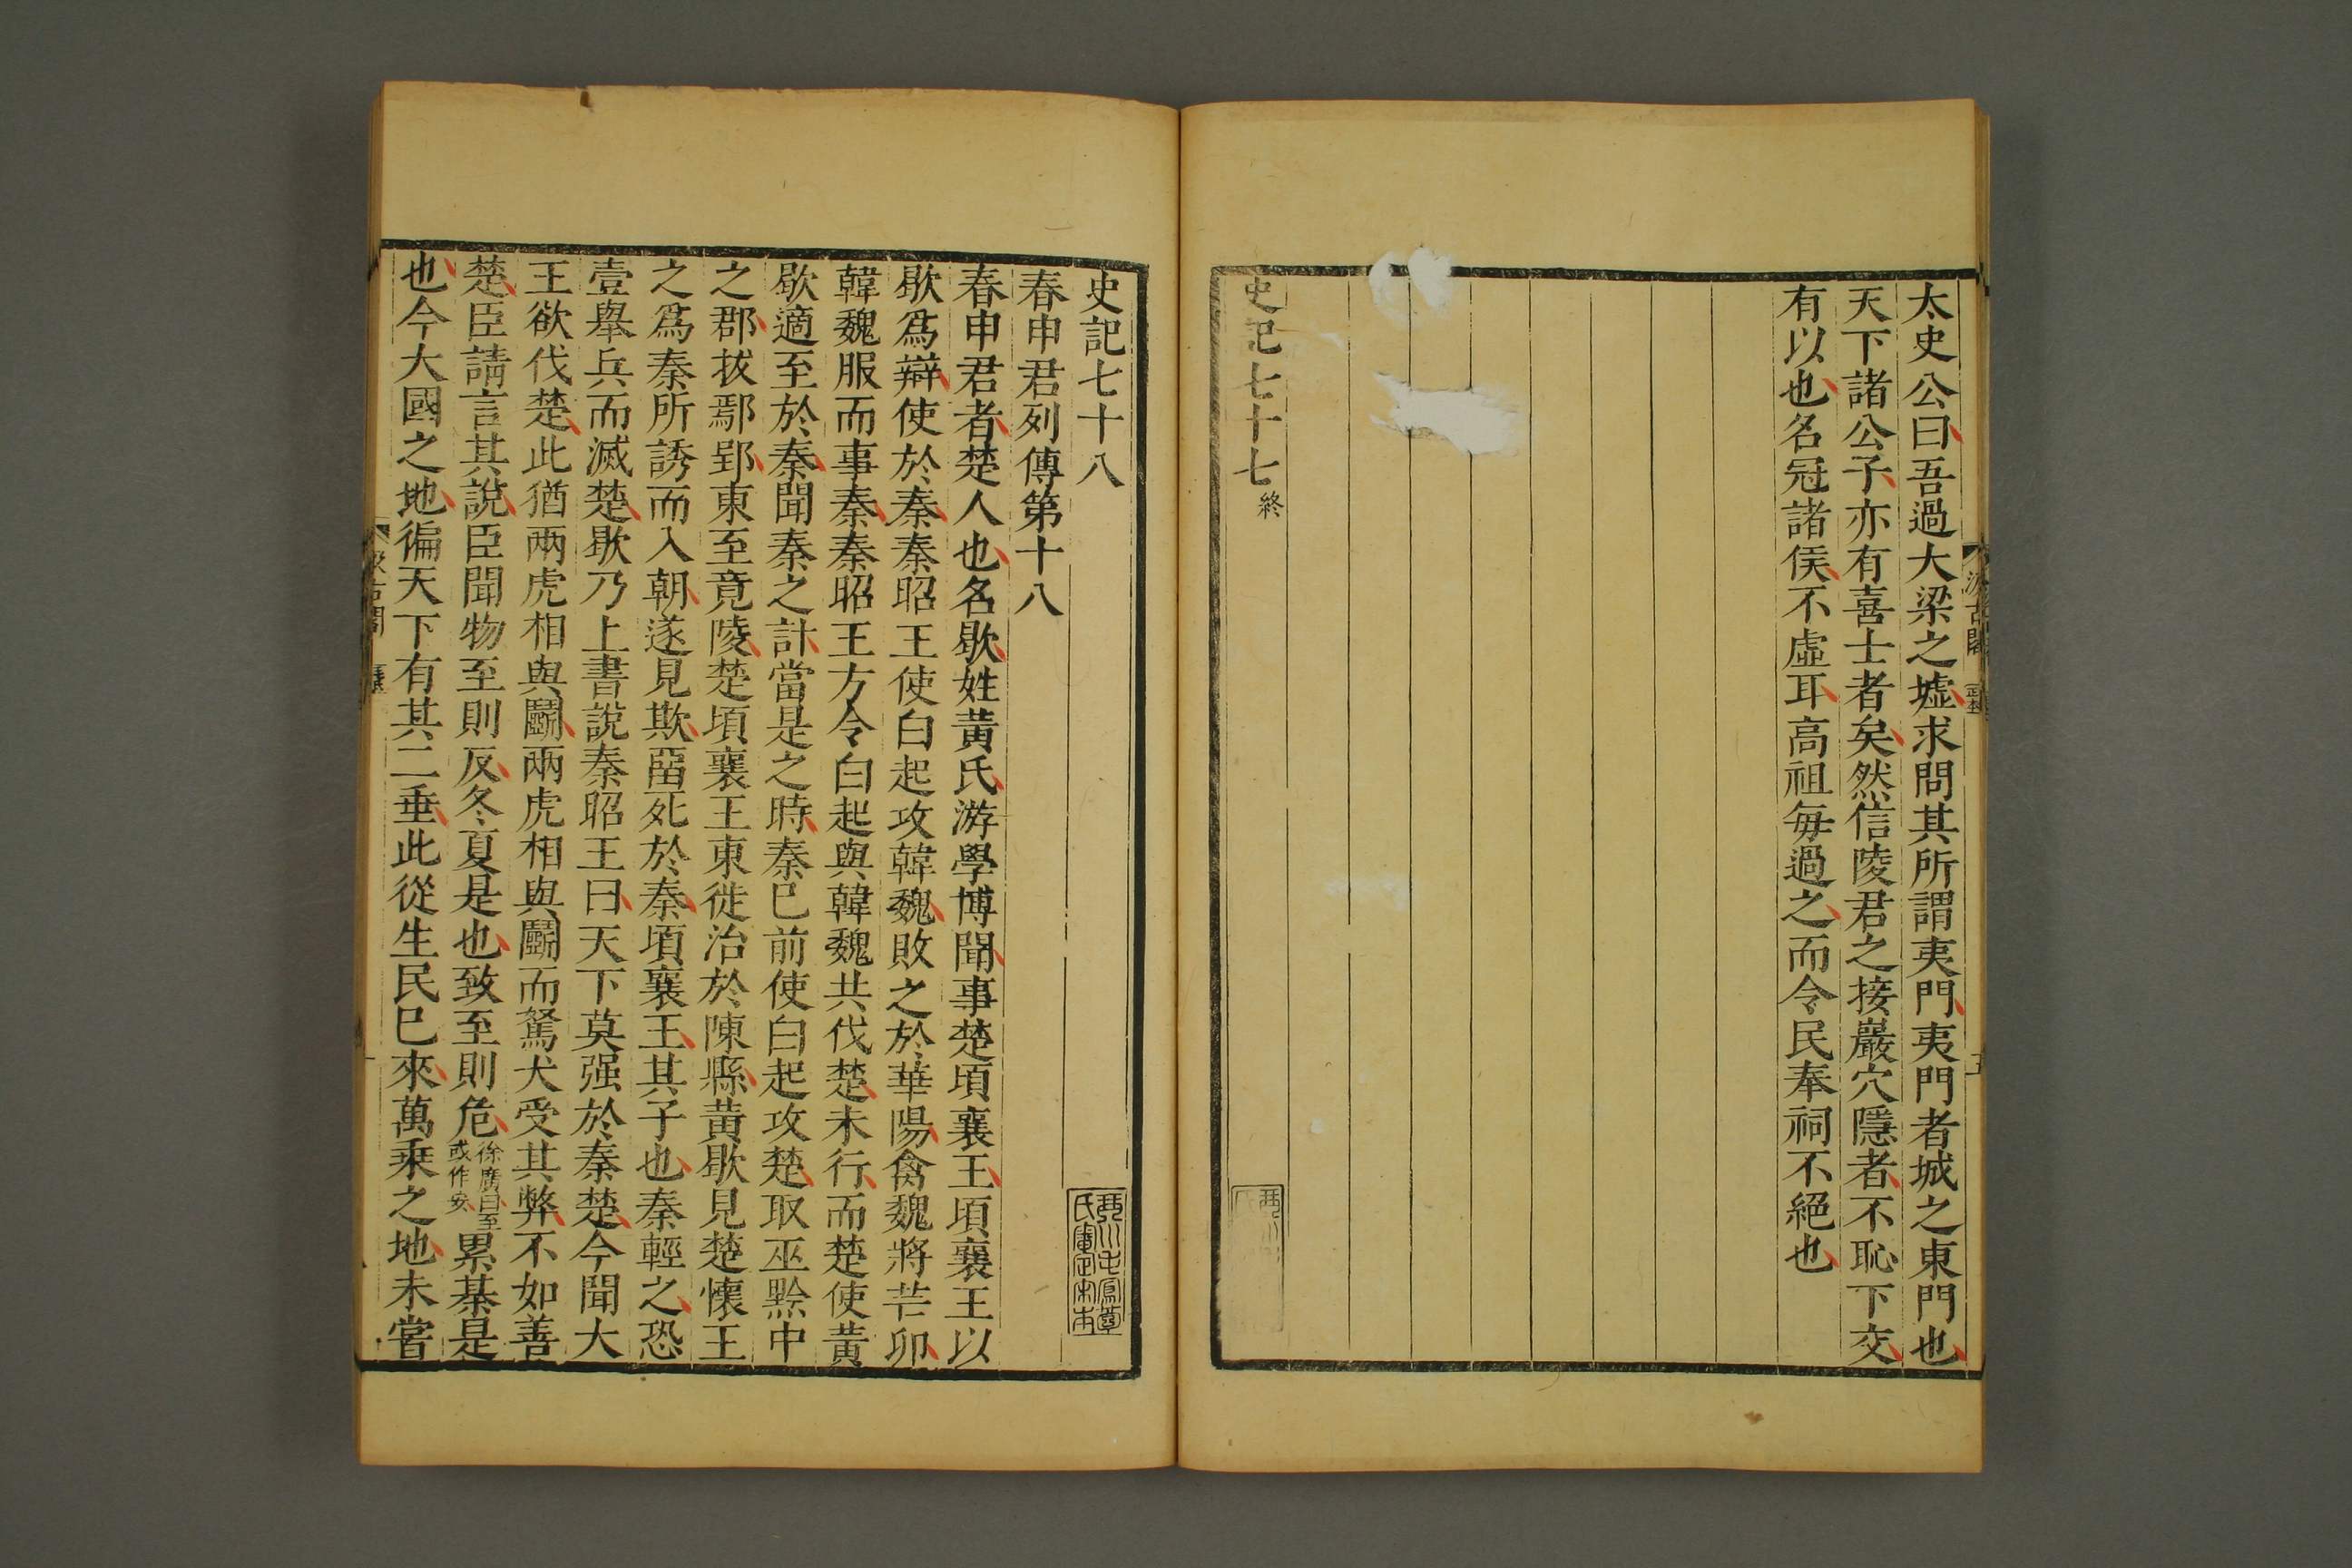 太史公曰吾過大梁之墟求問其所謂夷門夷門者城之東門也
天下諸公子亦有喜士者矣然信陵君之接巖穴隱者不恥下交
有以也名冠諸侯不虛耳高祖每過之而令民奉祠不絕也
史記七十七
終
史記七十八
春申君列傳第十八
春申君者楚人也名歇姓黃氏游學博聞事楚頃襄王頃襄王以
歇爲辯使於秦秦昭王使白起攻韓魏敗之於華陽禽魏將芒卯
韓魏服而事秦秦昭王方令白起與韓魏共伐楚未行而楚使黃
歇適至於秦聞秦之計當是之時秦已前使白起攻楚取巫黔中
之郡拔鄢郢東至竟陵楚頃襄王東徙治於陳縣黃歇見楚懷王
之爲秦所誘而入朝遂見欺留死於秦頃襄王其子也秦輕之恐
壹舉兵而滅楚歇乃上書說秦昭王曰天下莫强於秦楚今聞大
王欲伐楚此猶兩虎相與鬭兩虎相與鬭而駑犬受其弊不如善
楚臣請言其說臣聞物至則反冬夏是也致至則危徐廣曰至或作安累棊是
也今大國之地徧天下有其二垂此從生民已來萬乘之地未嘗